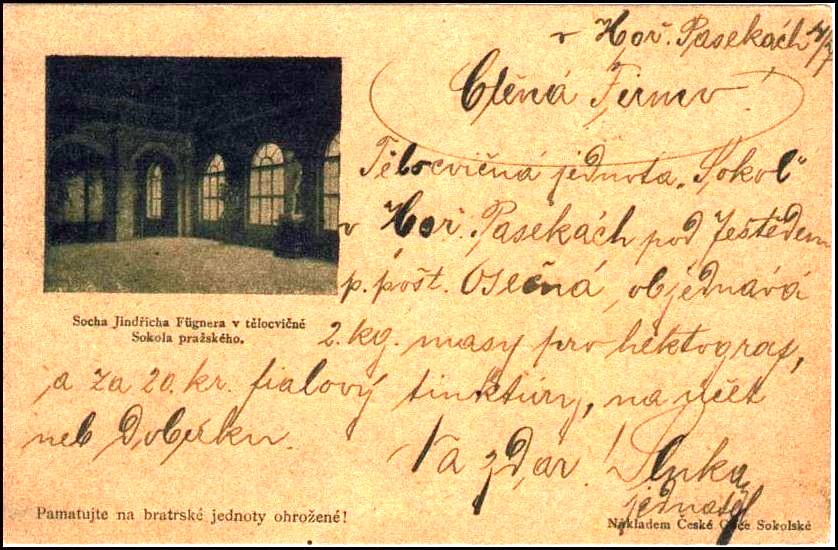 v Hoř. Pasekách
Ctěná Firmo!
Tělocvičná jednota „Sokol“
v Hoř. Pasekách pod Ještědem
p. pošt. Osečná, objednává
2. kg. masy pro hektograf,
a za 20. kr. fialový tinktury, na účet
neb Doberku.
Na zdar!
jednatel
Socha Jindřicha Fügnera v tělocvičné
Sokola pražského.
Pamatujte na bratrské jednoty ohrožené!
Nákladem České Obce Sokolské